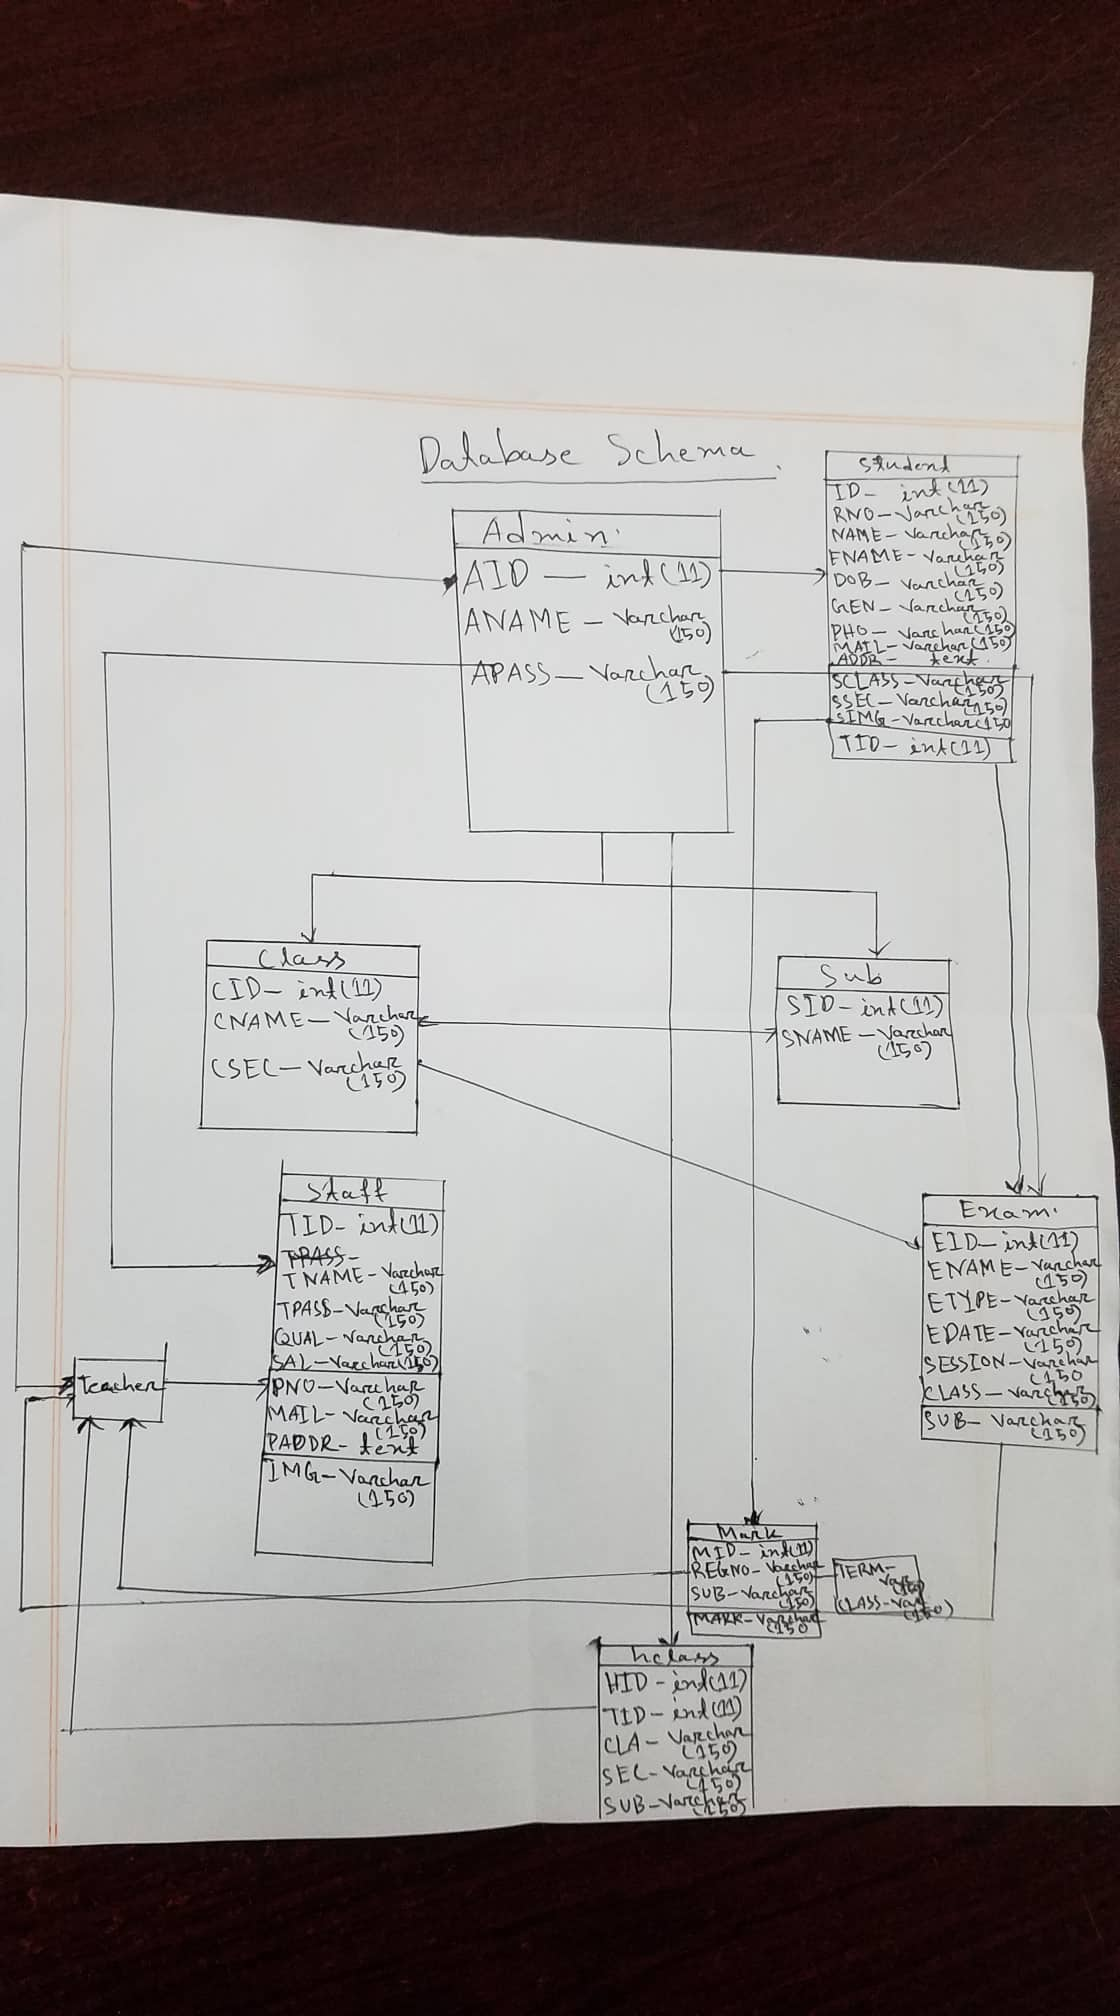 Database Schema.
Student
ID- int(11)
RNO-Varchar
(150)
NAME-Varchar
(150)
ENAME-Varchar
(150)
DOB- Varchar
(150)
GEN- Varchar
(150)
PHO- Varchar(150)
MAIL-Varchar(150)
ADDR- text.
SCLASS-Varchar
(150)
SSEC-Varchar
(150)
SIMG-Varchar(150
TID-int(11)
Admin.
AID — int(11)
ANAME-Varchar
(150)
APASS-Varchar
(150)
Class
CID- int(11)
CNAME-Varchar
(150)
CSEC-Varchar
(150)
Sub
SID-int(11)
SNAME-Varchar
(150)
Staff
TID-int(11)
TPASS-
TNAME-Varchar
(150)
TPASS-Varchar
(150)
QUAL-Varchar
(150)
SAL-Varchar(150)
PNO-Varchar
(150)
MAIL-Varchar
(150)
PADDR-text
IMG-Varchar
(150)
Teacher
Exam.
EID-int(11)
ENAME-Varchar
(150)
ETYPE-Varchar
(150)
EDATE-Varchar
(150)
SESSION-Varchar
(150
CLASS-Varchar
(150)
SUB-Varchar
(150)
Mark
MID-int(11)
REGNO-Varchar
(150)
SUB-Varchar
(150)
MARK-Varchar
(150
TERM-
Var
(150)
CLASS-Var
(150)
hclass
HID-int(11)
TID-int(11)
CLA-Varchar
(150)
SEC-Varchar
(150)
SUB-Varchar
(150)